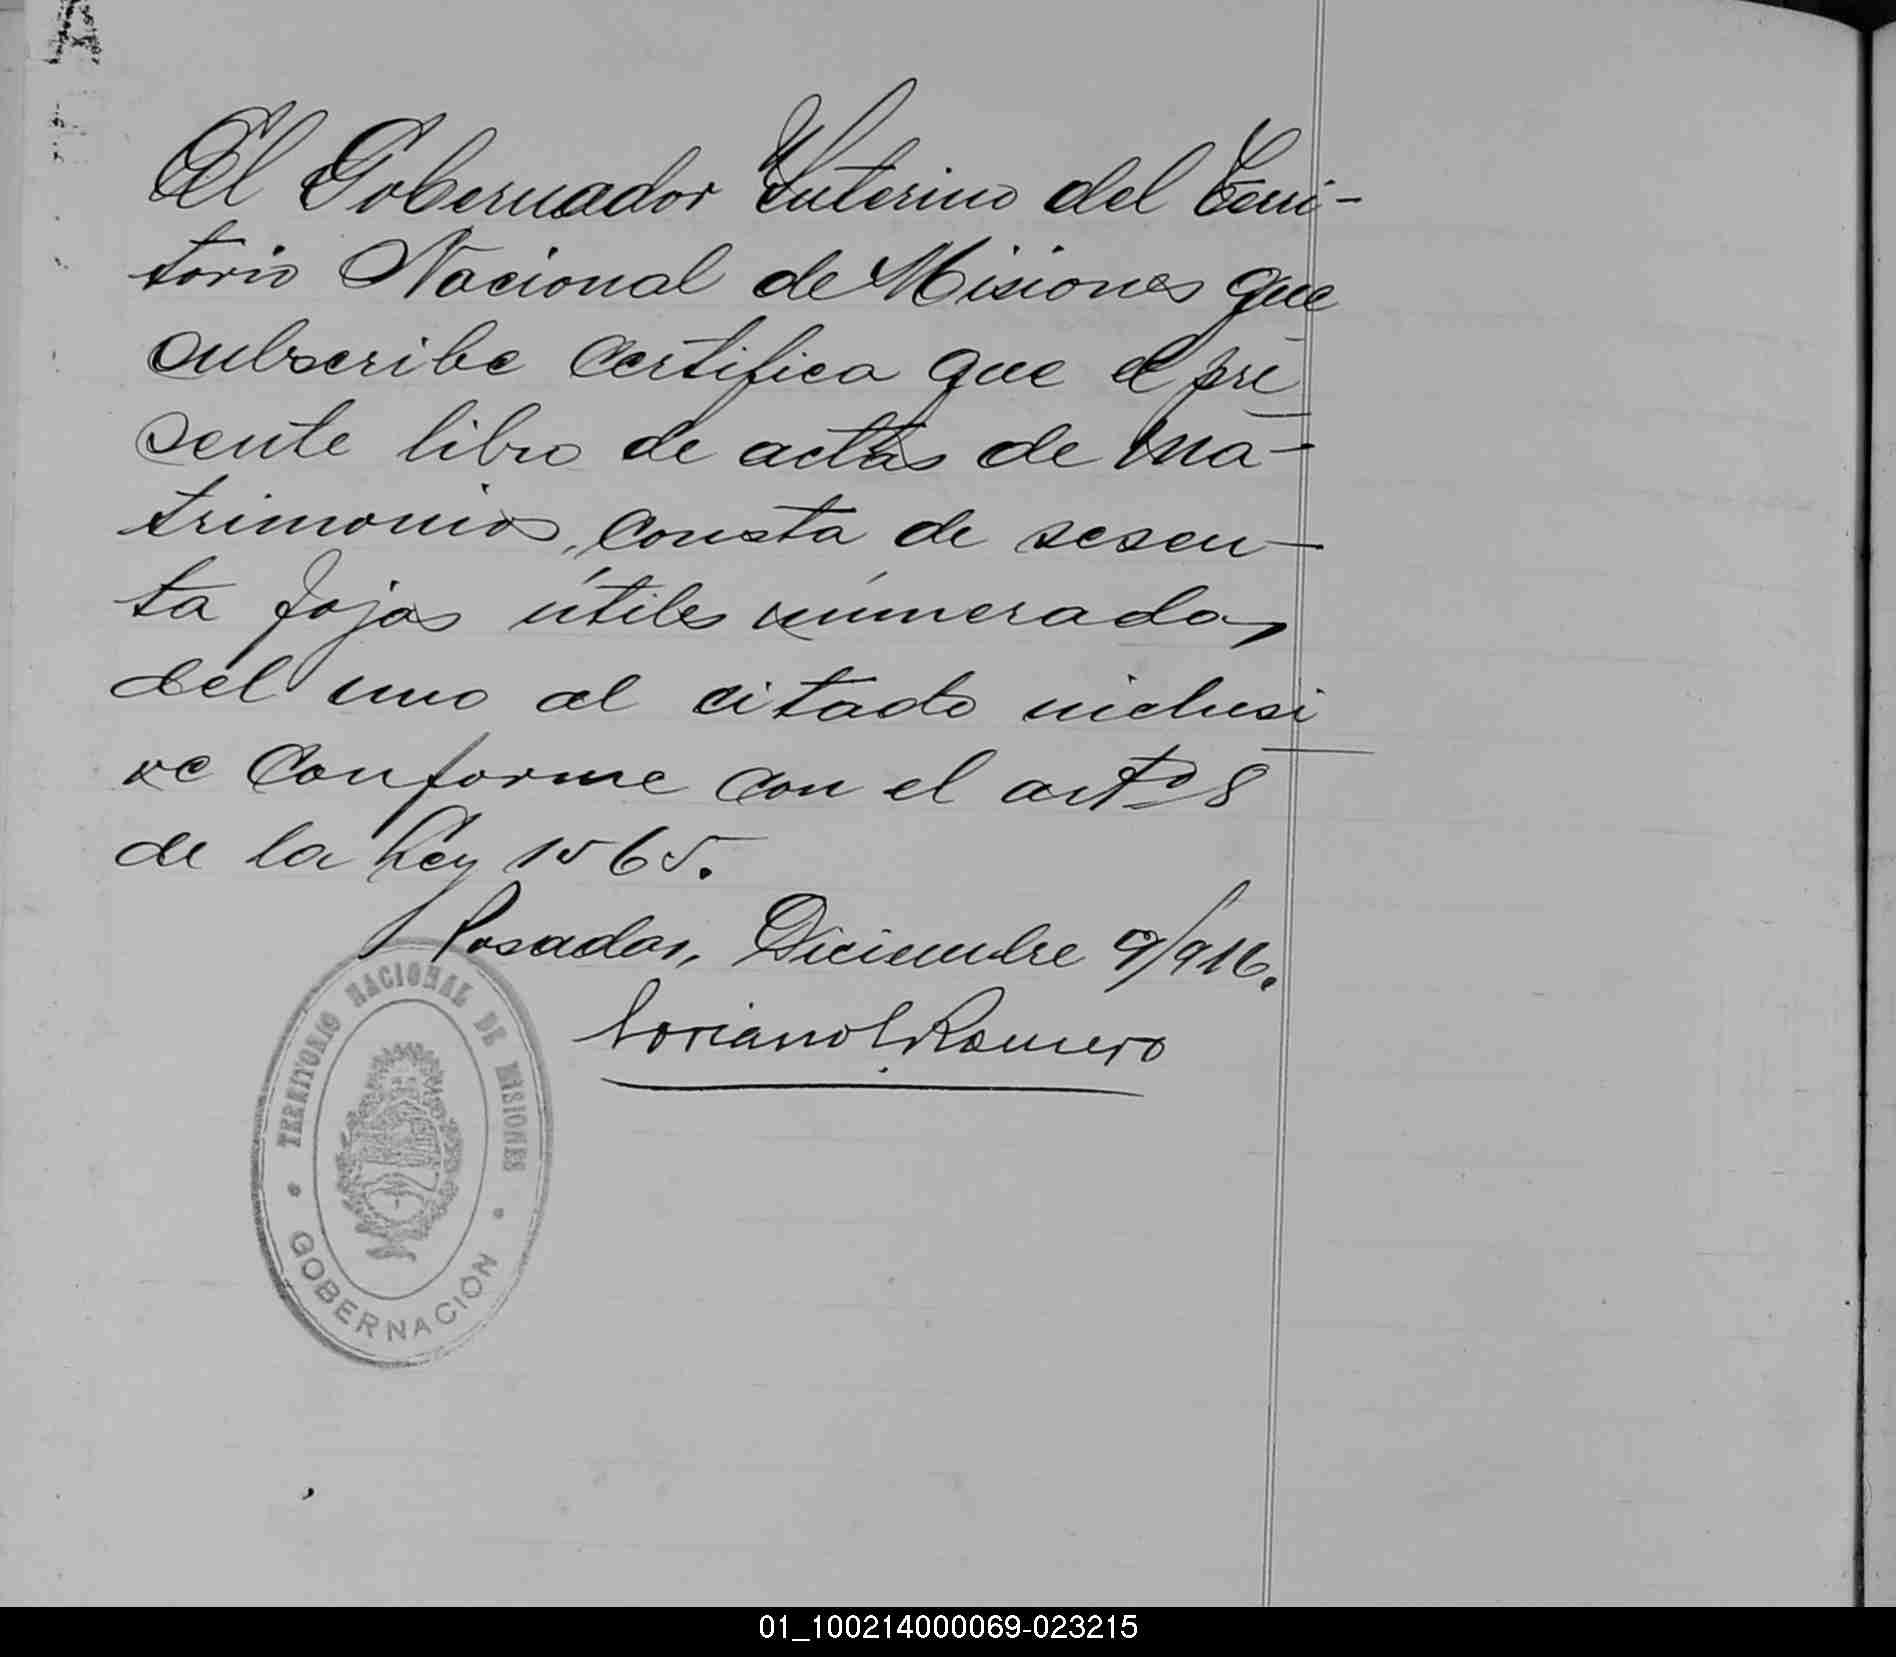 El Gobernador Interino del Terri-
torio Nacional de Misiones que
subscribe certifica que el pre
sente libro de actas de ma-
trimonios, consta de sesen-
ta fojas útiles númeradas
del uno al citado inclusi
ve conforme con el artº 8
de la Ley 1565.
Posadas, Diciembre 9/916.
Soriano Romero
TERRITORIO NACIONAL DE MISIONES
GOBERNACIÓN
01_100214000069-023215